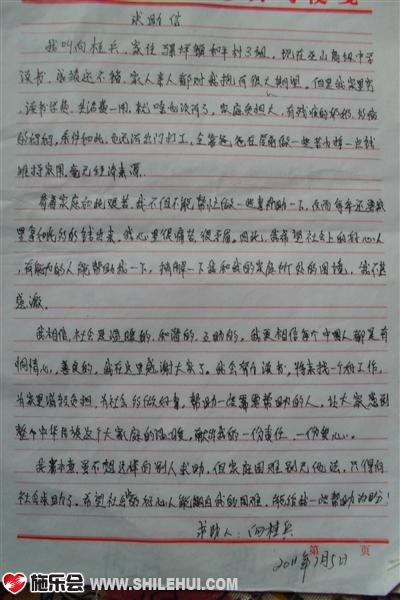 求助信
我叫向桂兵,家住骡坪镇和平村3组,现在巫山高级中学
读书,成绩还不错,家人亲人都对我抱有很大期望。但是我家里穷
读书学费、生活费一用,就啥都没有了,家庭负担大,有残疾的奶奶,
条件如此,也无法出门打工,全靠爸爸在屋前做一些农活一点钱
维持家用,毫无经济来源。
看着家庭如此艰苦,我不但不能帮忙做一些事帮助一下,反而每年还要家
里拿如此多的钱出来,我心里很痛苦,很矛盾。因此,我希望社会上的好心人
,有能力的人能帮助我一下,缓解一下我和我的家庭所处的困境,我不甚
感激。
我相信,社会是温暖的,和谐的,互助的,我更相信每个中国人都是有
同情心,善良的,我在这里感谢大家了。我会努力读书,将来找一个好工作,
为家里减轻负担,为社会多做好事,帮助一些需要帮助的人,让大家感到
整个中华民族这个大家庭的温暖,献出我的一份责任,一份爱心。
我虽不想这样向别人求助,但家庭困难别无他法,只得向
社会求助了。希望社会的好心人能明白我的困难,能给我一些帮助
求助人:向桂兵
2011年7月5日
第 页
施乐会 WWW.SHILEHUI.COM